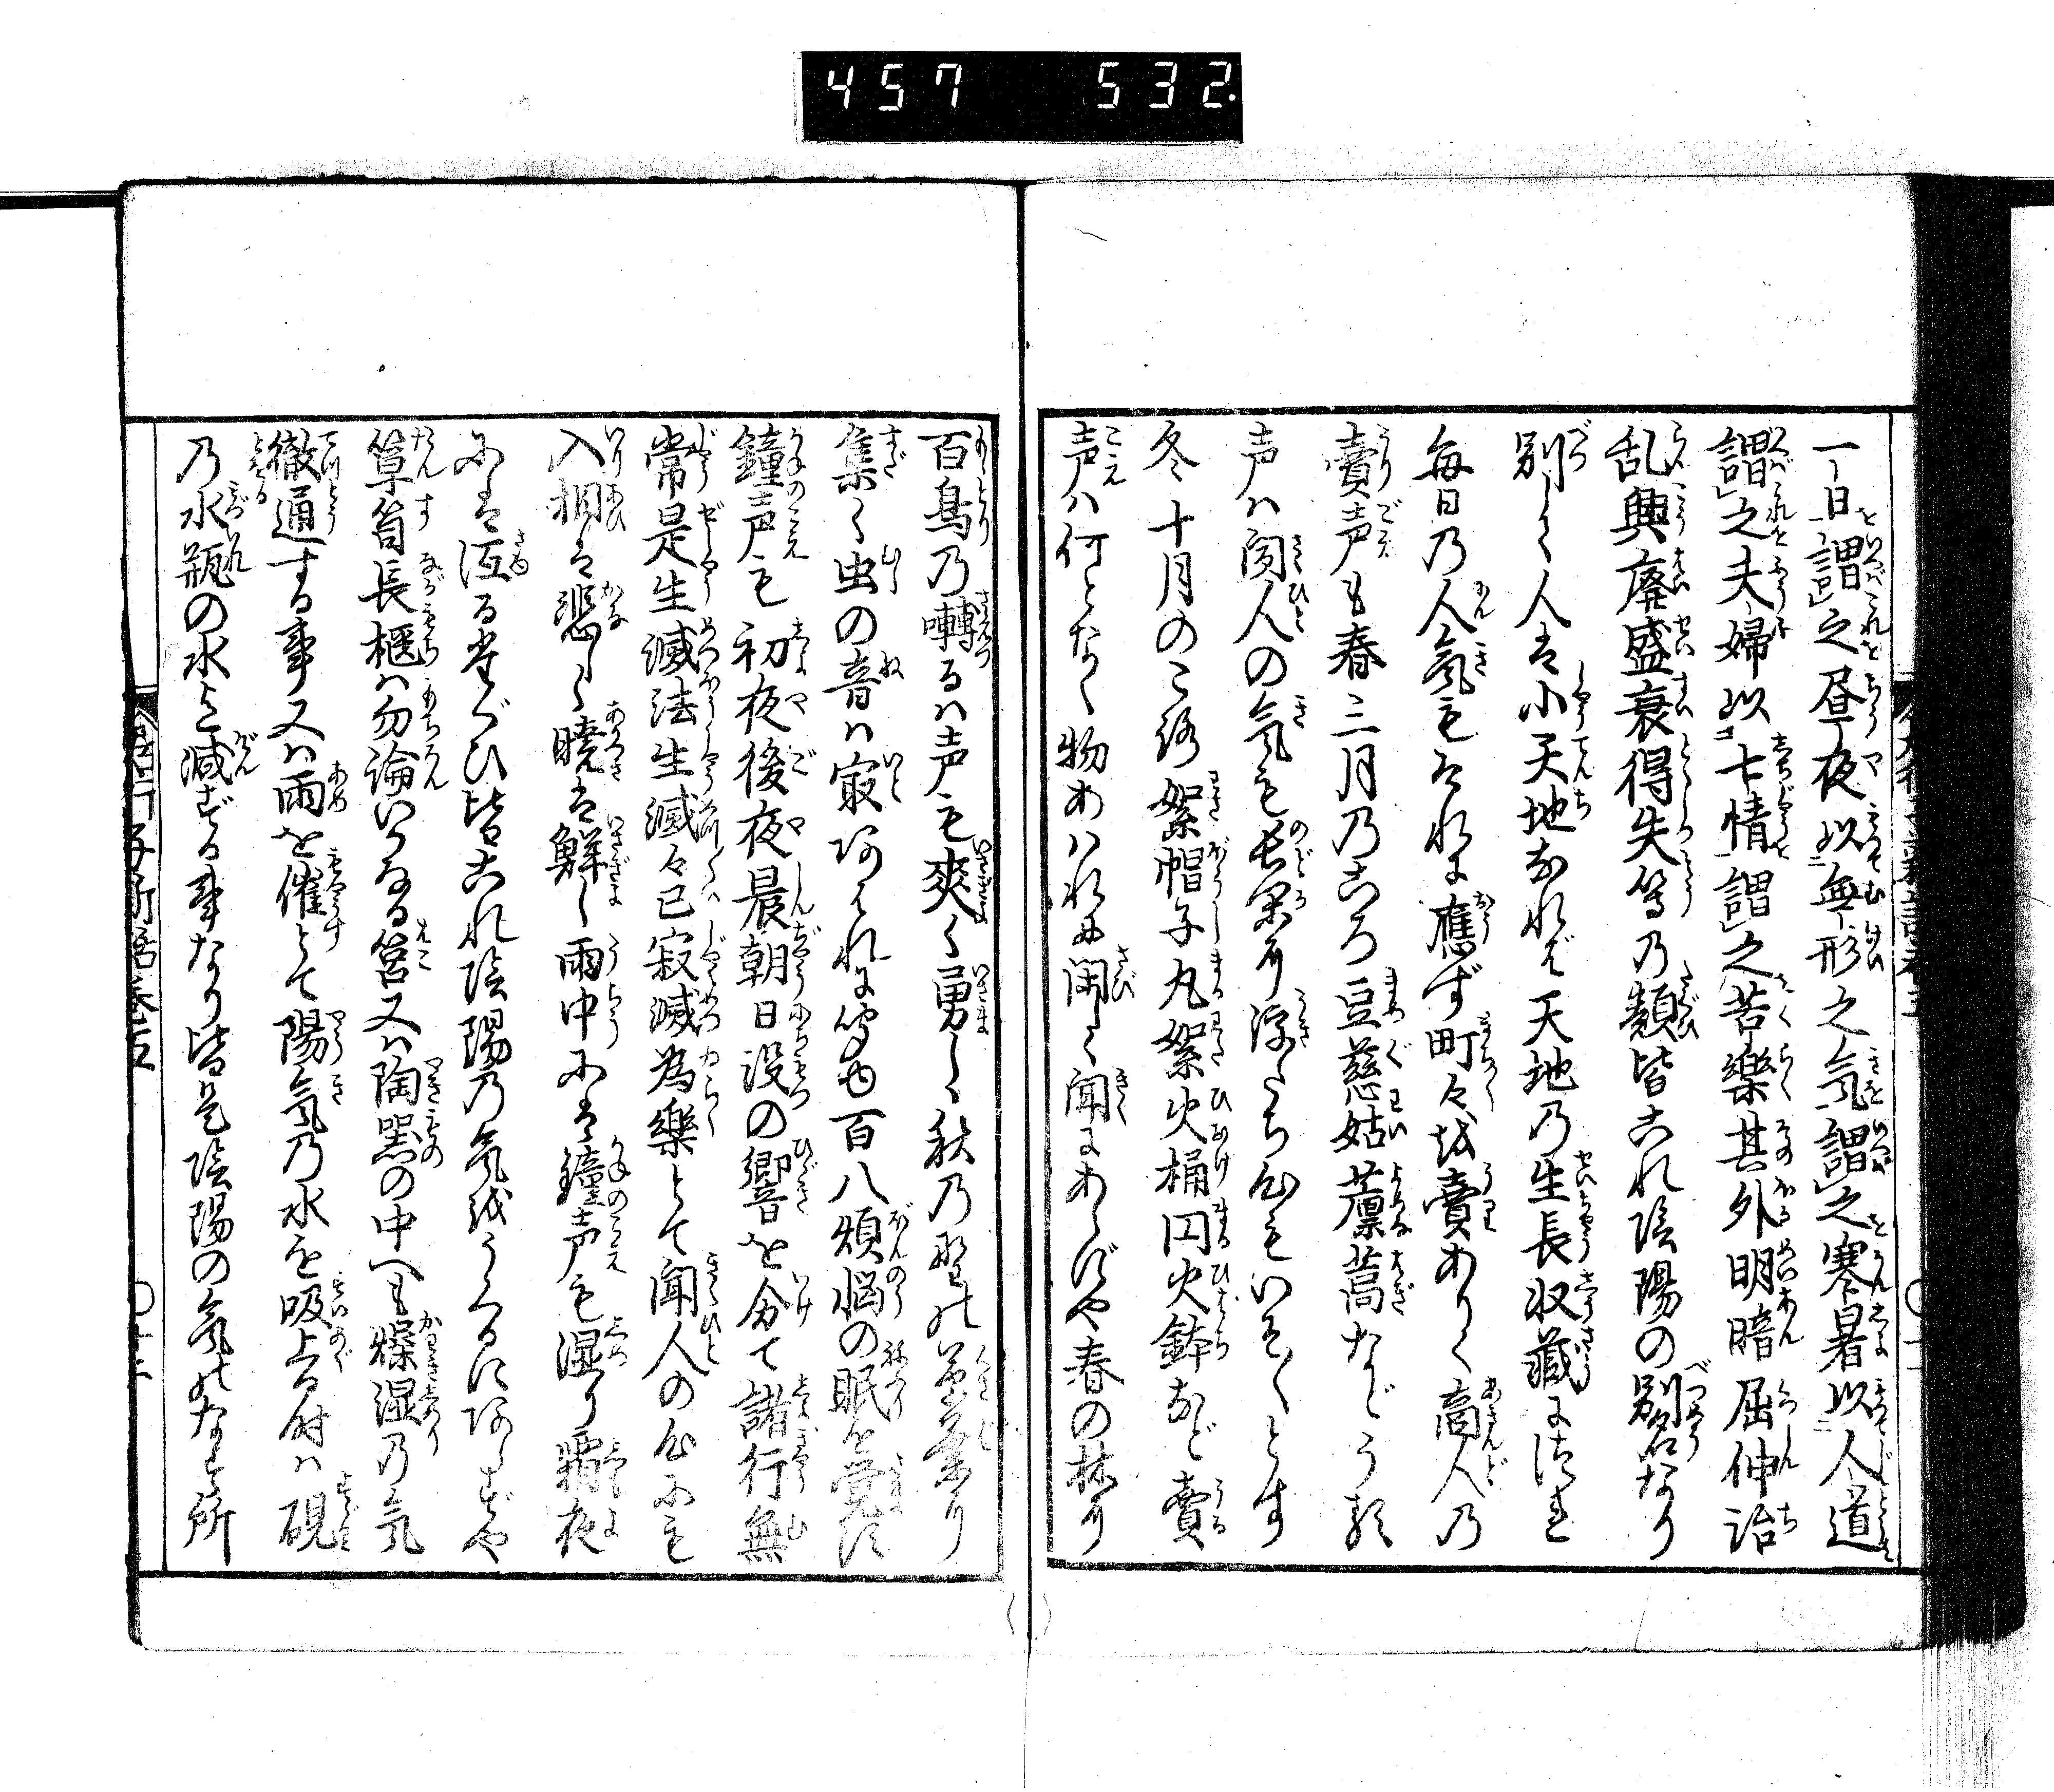 457 532
一日謂之昼夜以無形之気謂之寒暑以人道
謂之夫婦以七情謂之苦楽其外明暗屈伸治
乱興廃盛衰得失等乃類皆これ陰陽の別名なり
別して人は小天地なれば天地乃生長収蔵に
毎日乃人気もそれに應ず町々を賣ありく商人乃
賣声も春三月乃ころ豆慈姑藨蒿などうる
声ハ聞人の気も長閑に浮たち心もいそ〱とす
冬十月のころ絮帽子丸絮火桶円火鉢など賣
声ハ何となく物あハれに閑て聞にあらずや春の林に
百鳥乃囀るハ声も爽く勇し秋乃野の草葉に
集く虫の音ハ寂あはれに百八煩悩の眠を覚
鐘声も初夜後夜晨朝日没の響を分て諸行無
常是生滅法生滅々已寂滅為樂とて聞人の心にも
入相は悲しく暁は鮮し雨中には鐘声も湿り霜夜
には冱るたぐひ皆これ陰陽乃気をうくるにあらずや
箪笥長櫃ハ勿論いかなる筥又ハ陶器の中へも燥湿乃気
徹通する事又ハ雨を催とて陽気乃水を吸上る時ハ硯
乃水瓶の水を減ずる事なり皆是陰陽の気のなす所